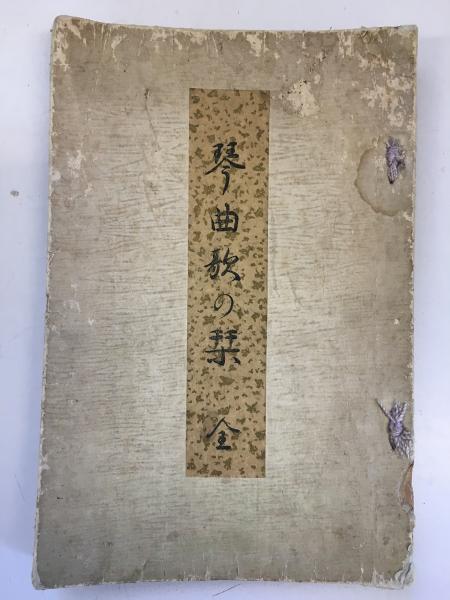 琴曲歌の栞 全